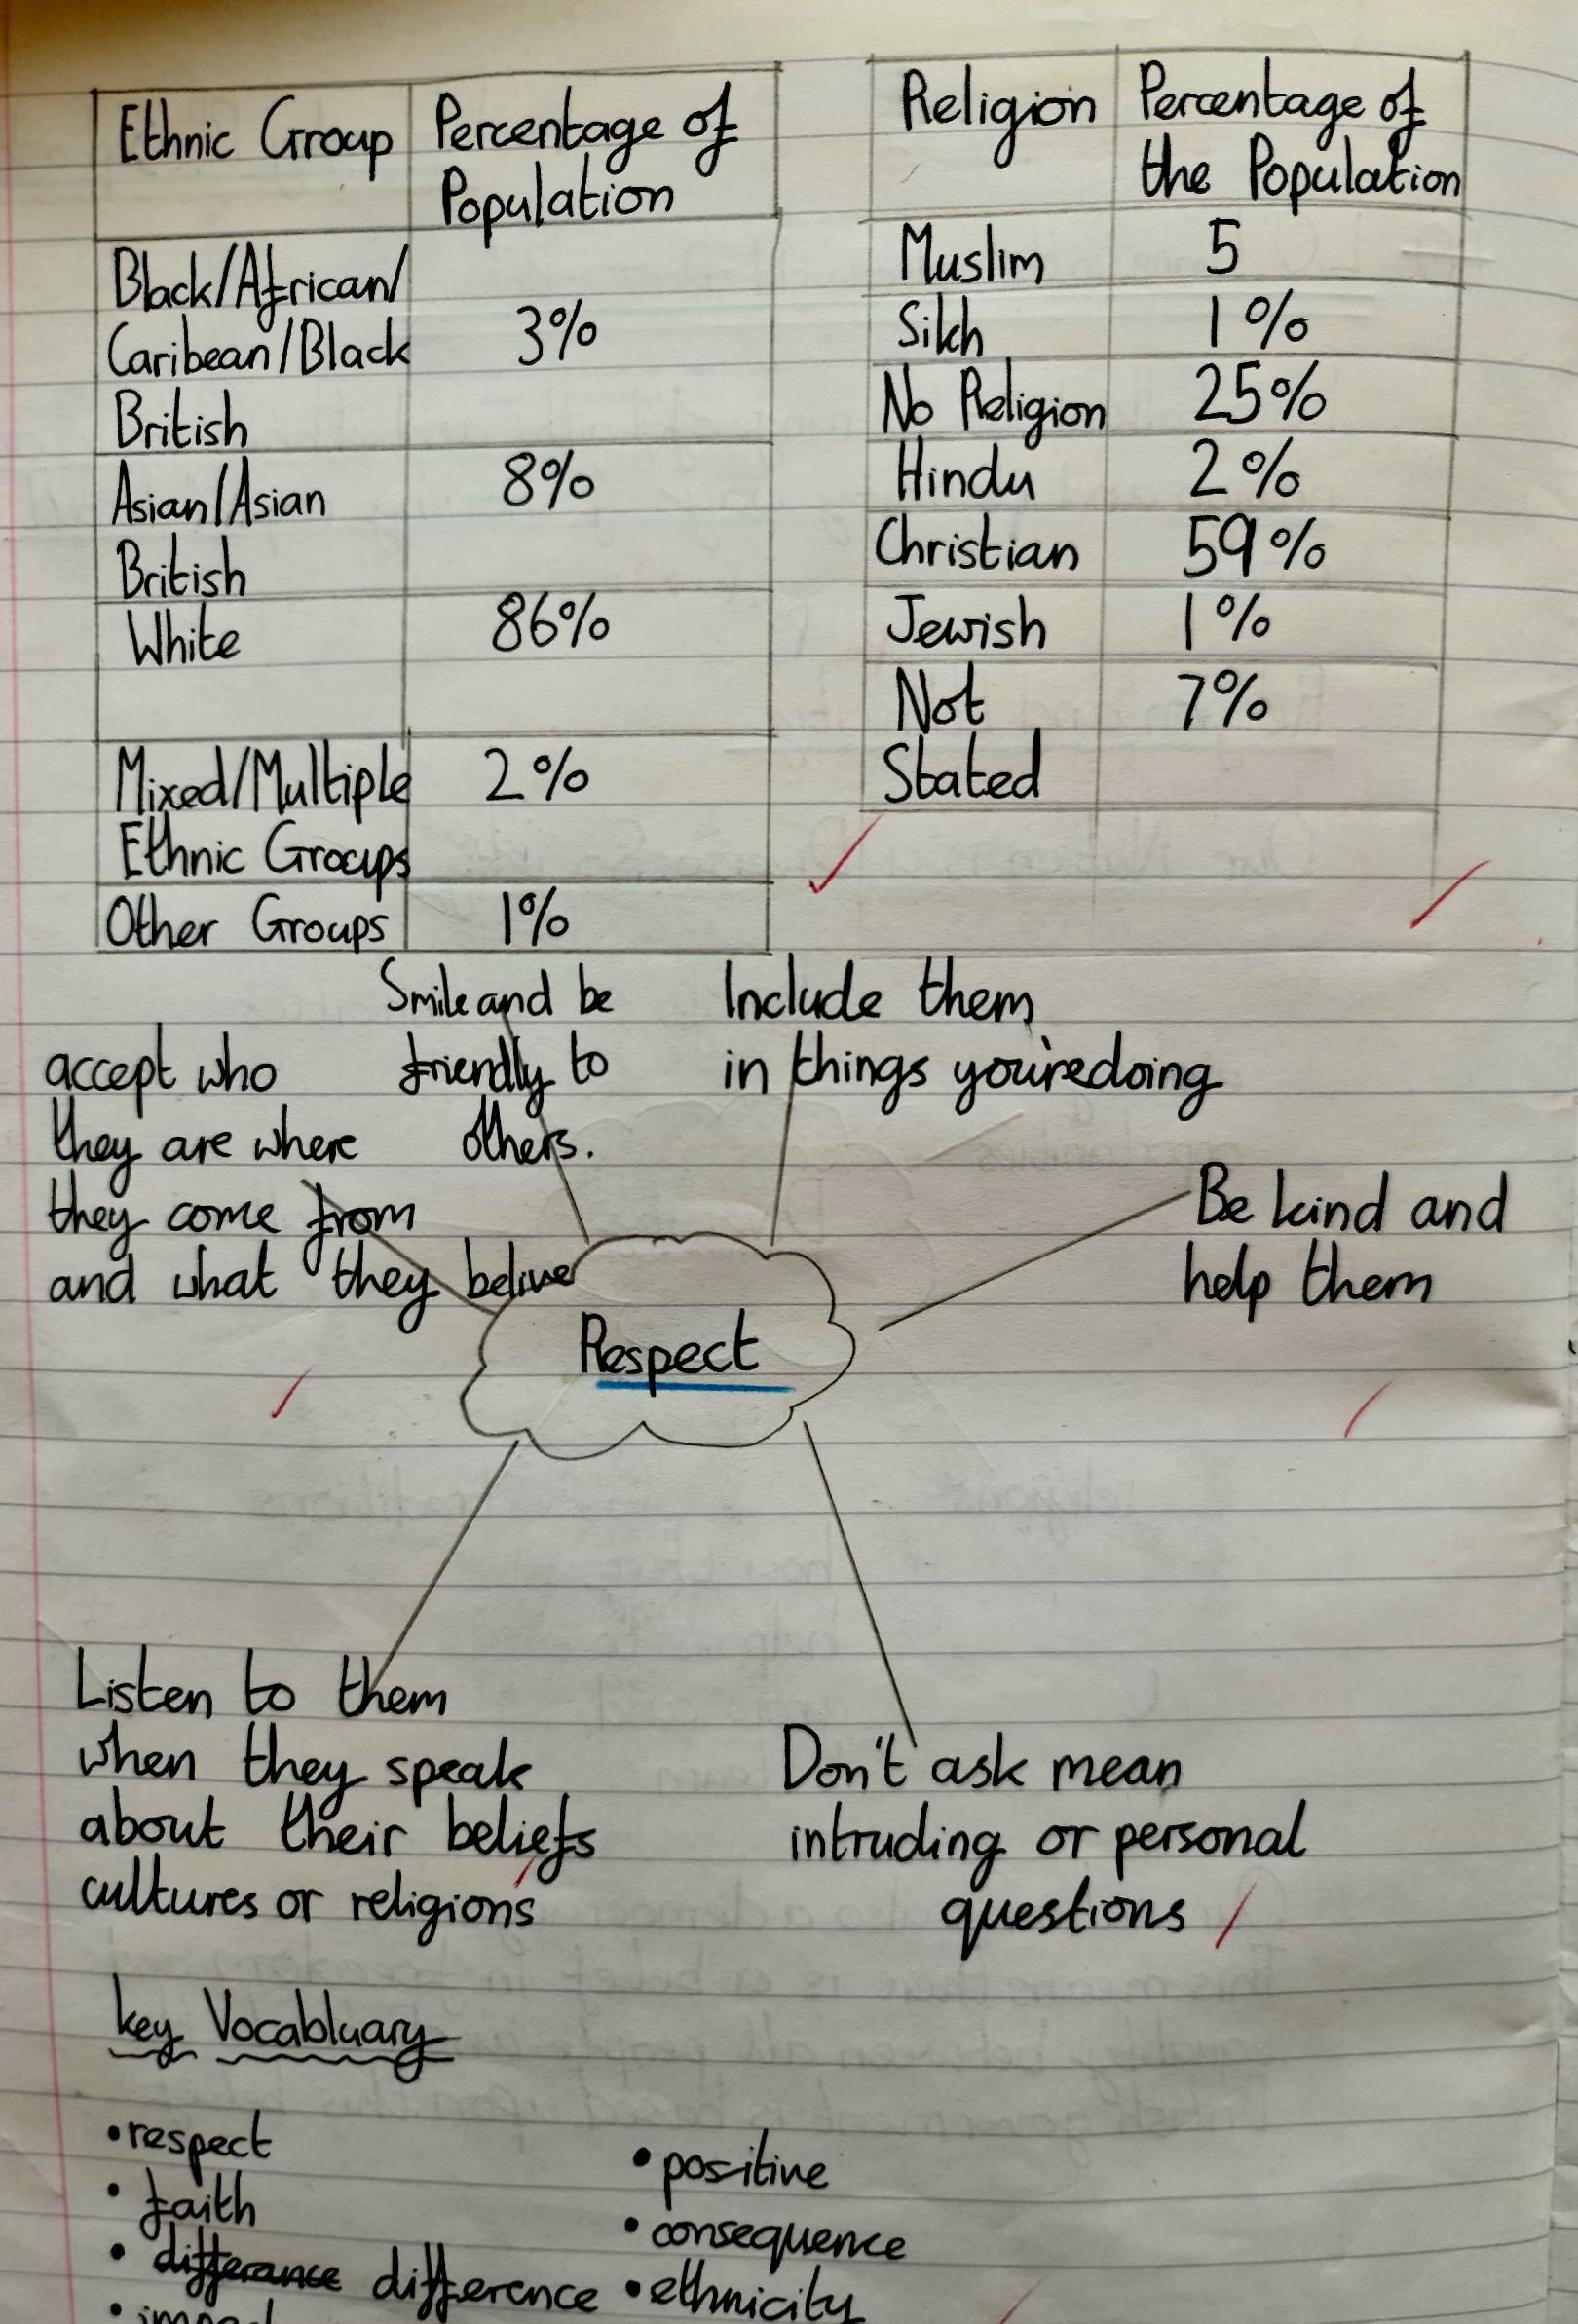 Ethnic Group Percentage of
Population
Black/African/
Caribean/Black 3%
British
Asian/Asian 8%
British
White 86%
Mixed/Multiple 2%
Ethnic Groups
Other Groups 1%
Religion Percentage of
the Population
Muslim 5
Sikh 1%
No Religion 25%
Hindu 2%
Christian 59%
Jewish 1%
Not 7%
Stated
Smile and be
friendly to
others.
Include them
in things you're doing
accept who
they are where
they come from
and what they belive
Be kind and
help them
Respect
Listen to them
when they speak
about their beliefs
cultures or religions
Don't ask mean
intruding or personal
questions
key Vocabluary
• respect
• faith
• differance difference
• positive
• consequence
• ethnicity